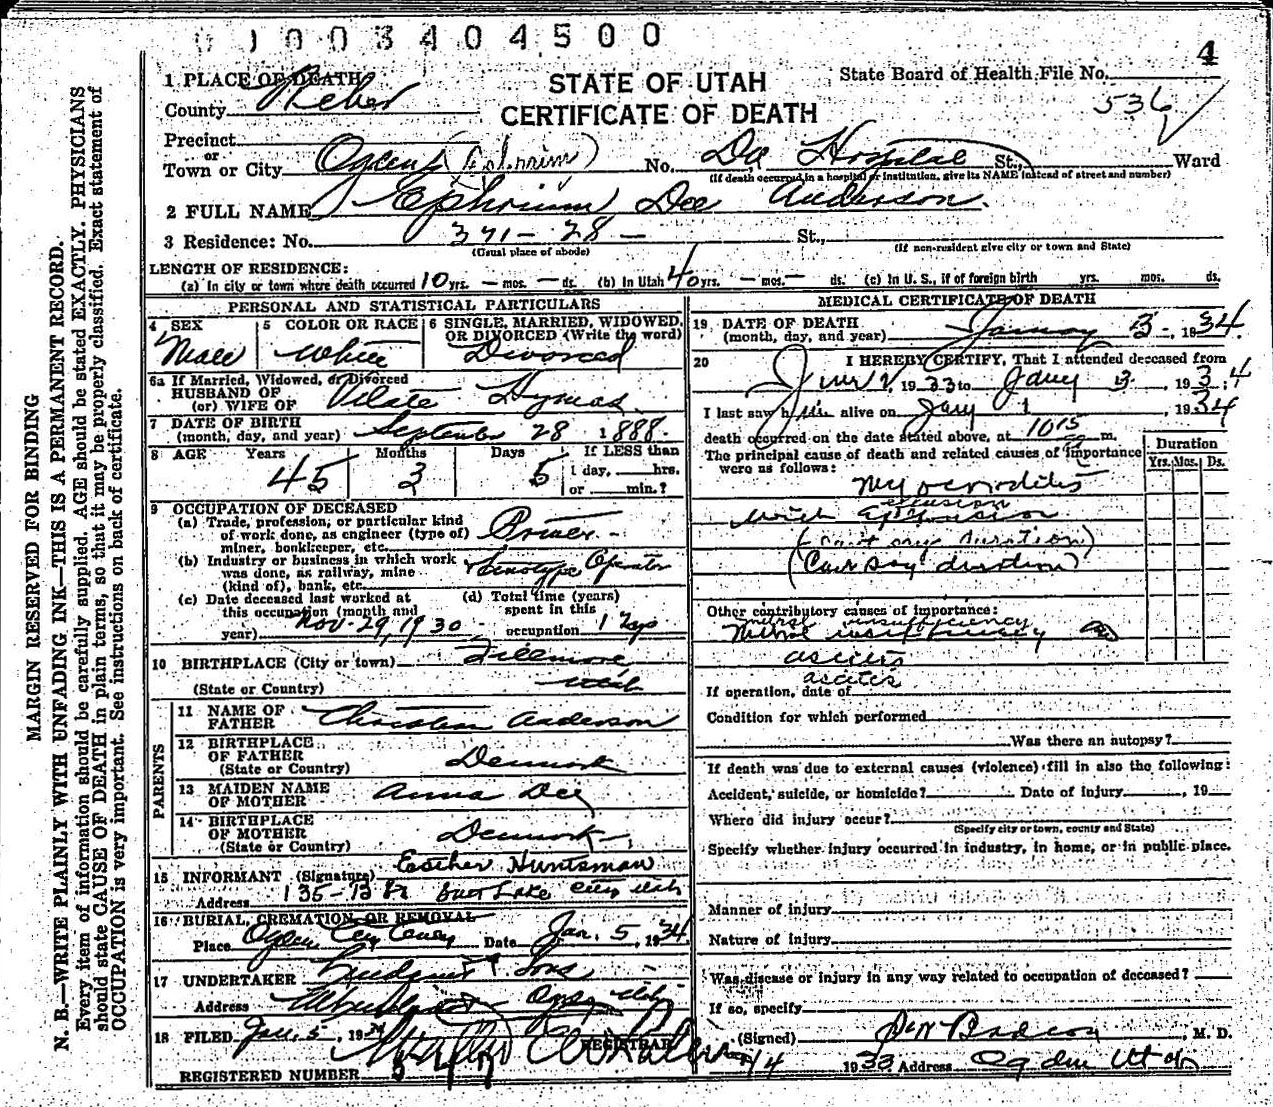 0 1 0 0 3 4 0 4 5 0 0
4
1 PLACE OF DEATH
County Weber
STATE OF UTAH
CERTIFICATE OF DEATH
State Board of Health File No.
536
Precinct
or
Town or City Ogden No. Dee Hospital St., Ward
(If death occurred in a hospital or institution, give its NAME instead of street and number)
2 FULL NAME Ephrium Dee Anderson.
3 Residence: No. 371-28- St.,
(Usual place of abode) (If non-resident give city or town and State)
LENGTH OF RESIDENCE:
(a) In city or town where death occurred 10 yrs. — mos. — ds. (b) In Utah 40 yrs. — mos. — ds. (c) In U. S., if of foreign birth yrs. mos. ds.
PERSONAL AND STATISTICAL PARTICULARS
4 SEX Male
5 COLOR OR RACE White
6 SINGLE, MARRIED, WIDOWED, OR DIVORCED (Write the word) Divorced
6a If Married, Widowed, or Divorced
HUSBAND OF
(or) WIFE OF Vilate Hymas
7 DATE OF BIRTH
(month, day, and year) September 28 1888.
8 AGE Years 45 Months 3 Days 5 If LESS than
1 day, hrs.
or min.?
9 OCCUPATION OF DECEASED
(a) Trade, profession, or particular kind
of work done, as engineer (type of)
miner, bookkeeper, etc.
(b) Industry or business in which work
was done, as railway, mine
(kind of), bank, etc. Linotype Operator
(c) Date deceased last worked at
this occupation (month and
year) Nov-29, 1930
(d) Total time (years)
spent in this
occupation
10 BIRTHPLACE (City or town) Fillmore
(State or Country) Utah
PARENTS
11 NAME OF
FATHER Christian Anderson
12 BIRTHPLACE
OF FATHER
(State or Country) Denmark
13 MAIDEN NAME
OF MOTHER Anna Dee
14 BIRTHPLACE
OF MOTHER
(State or Country) Denmark
15 INFORMANT (Signature) Esther Huntsman
Address Salt Lake City Utah
16 BURIAL, CREMATION, OR REMOVAL
Place Ogden City Date Jan. 5, 1934
17 UNDERTAKER & Sons
Address Ogden Utah
18 FILED Jan. 5, 19
REGISTRAR
REGISTERED NUMBER
MEDICAL CERTIFICATE OF DEATH
19 DATE OF DEATH
(month, day, and year) January 3-, 1934.
20 I HEREBY CERTIFY, That I attended deceased from
1933 to Jany 3, 1934
I last saw him alive on Jany 1, 1934
death occurred on the date stated above, at 10 15 m.
The principal cause of death and related causes of importance
were as follows:
Duration
Yrs. Mos. Ds.
Myocarditis
effusion
with effusion
Other contributory causes of importance:
mitral insufficiency
Mitral insufficiency
ascitis
ascites
If operation, date of
Condition for which performed
Was there an autopsy?
If death was due to external causes (violence) fill in also the following:
Accident, suicide, or homicide? Date of injury , 19
Where did injury occur?
(Specify city or town, county and State)
Specify whether injury occurred in industry, in home, or in public place.
Manner of injury
Nature of injury
Was disease or injury in any way related to occupation of deceased?
If so, specify
(Signed) M. D.
1/4 1933 Address Ogden Utah
MARGIN RESERVED FOR BINDING
N. B.—WRITE PLAINLY WITH UNFADING INK—THIS IS A PERMANENT RECORD.
Every item of information should be carefully supplied. AGE should be stated EXACTLY. PHYSICIANS
should state CAUSE OF DEATH in plain terms, so that it may be properly classified. Exact statement of
OCCUPATION is very important. See instructions on back of certificate.